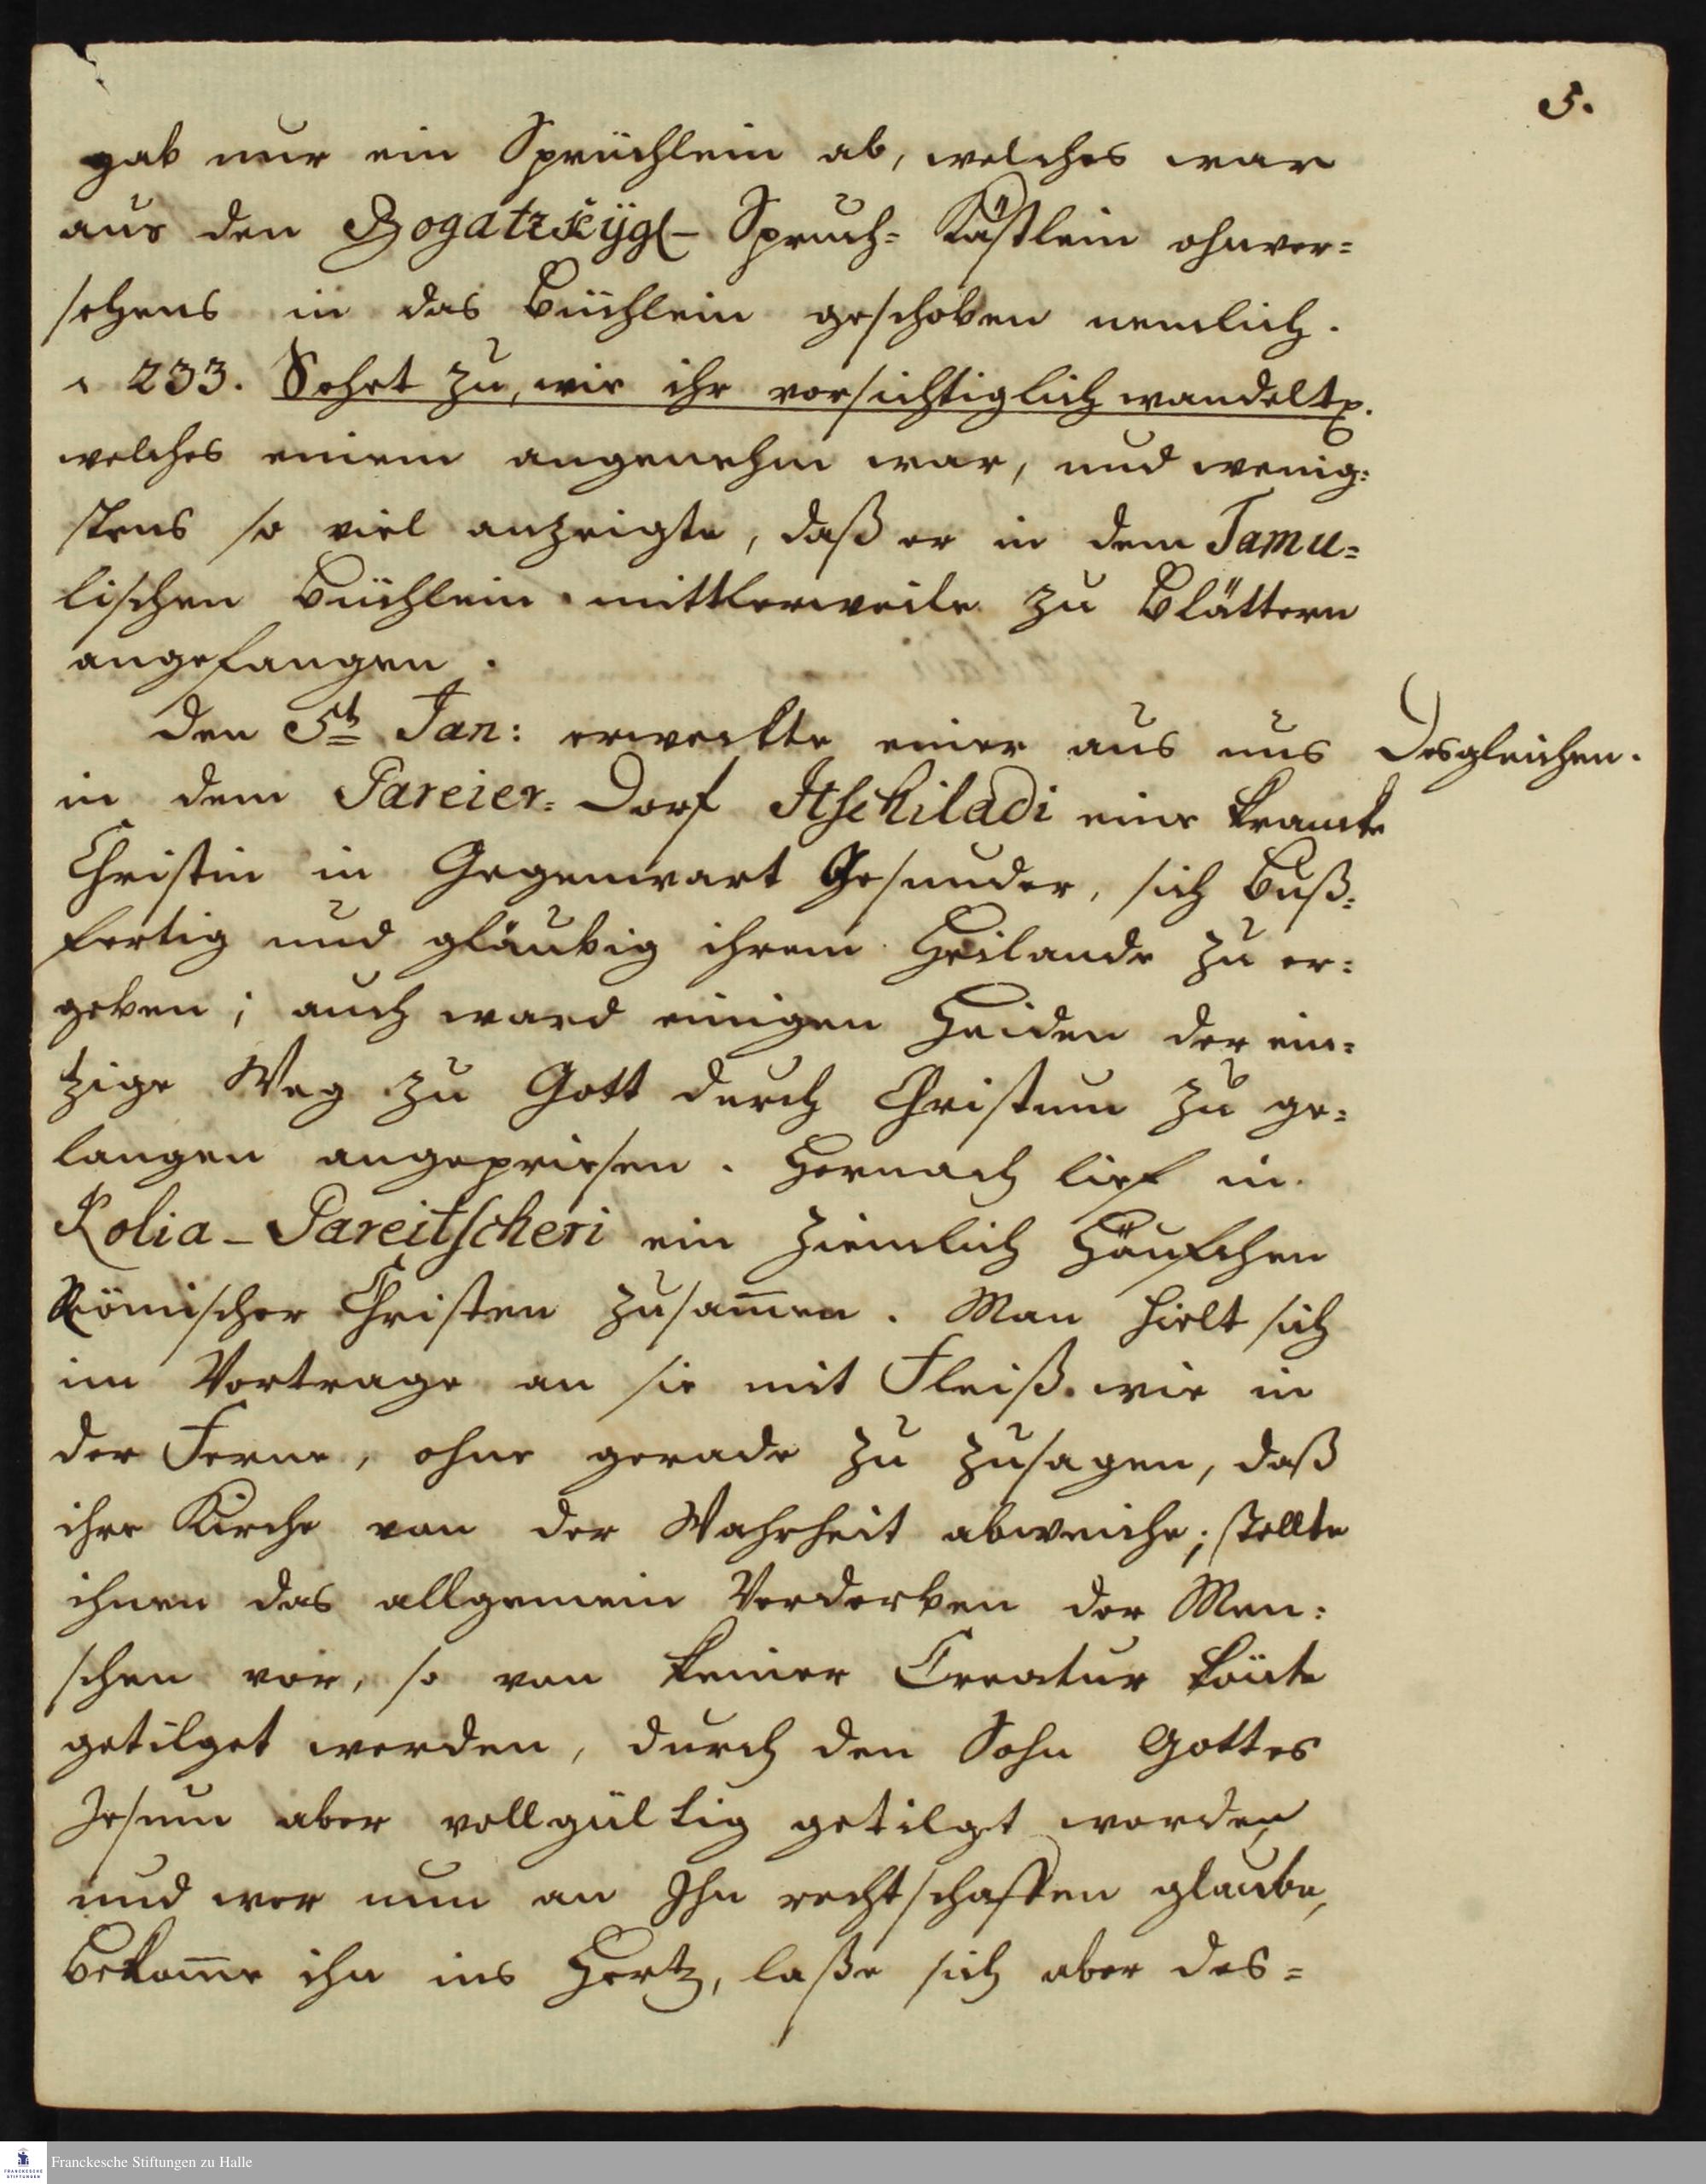 5.
gab nur ein Sprüchlein ab, welches war
aus den Bogatzkÿgl- Spruch= Kästlein ohnver=
sehens in das Büchlein geschoben nemlich.
233. Sehet zu, wie ihr vorsichtiglich wandelt p.
welches einem angenehm war, und wenig=
stens so viel anzeigte, daß er in dem Tamu=
lischen Büchlein mittlerweile zu blättern
angefangen.
Den 5t Jan: erweckte einer aus uns
Desgleichen.
in dem Pareier= Dorf Itschiladi eine krancke
Christin in Gegenwart Gesunder, sich buß=
fertig und gläubig ihrem Heilande zu er=
geben; auch ward einigen Heiden der ein=
tzige Weg zu Gott durch Christum zu ge=
langen angepriesen. Hernach lief in
Kolia-Pareitscheri ein ziemlich Häufchen
Römischer Christen zusam̅en. Man hielt sich
im Vortrage an sie mit Fleiß wie in
der Ferne, ohne gerade zu zusagen, daß
ihre Kirche von der Wahrheit abweiche; stellte
ihnen das allgemein Verderben der Men=
schen vor, so von keiner Creatur kön̅te
getilget werden, durch den Sohn Gottes
Jesum aber vollgültig getilgt worden
und wer nun an Ihn rechtschaffen glaube,
bekom̅e ihn ins Hertz, laße sich aber des=
Franckesche Stiftungen zu Halle
FRANCKESCHE
STIFTUNGEN